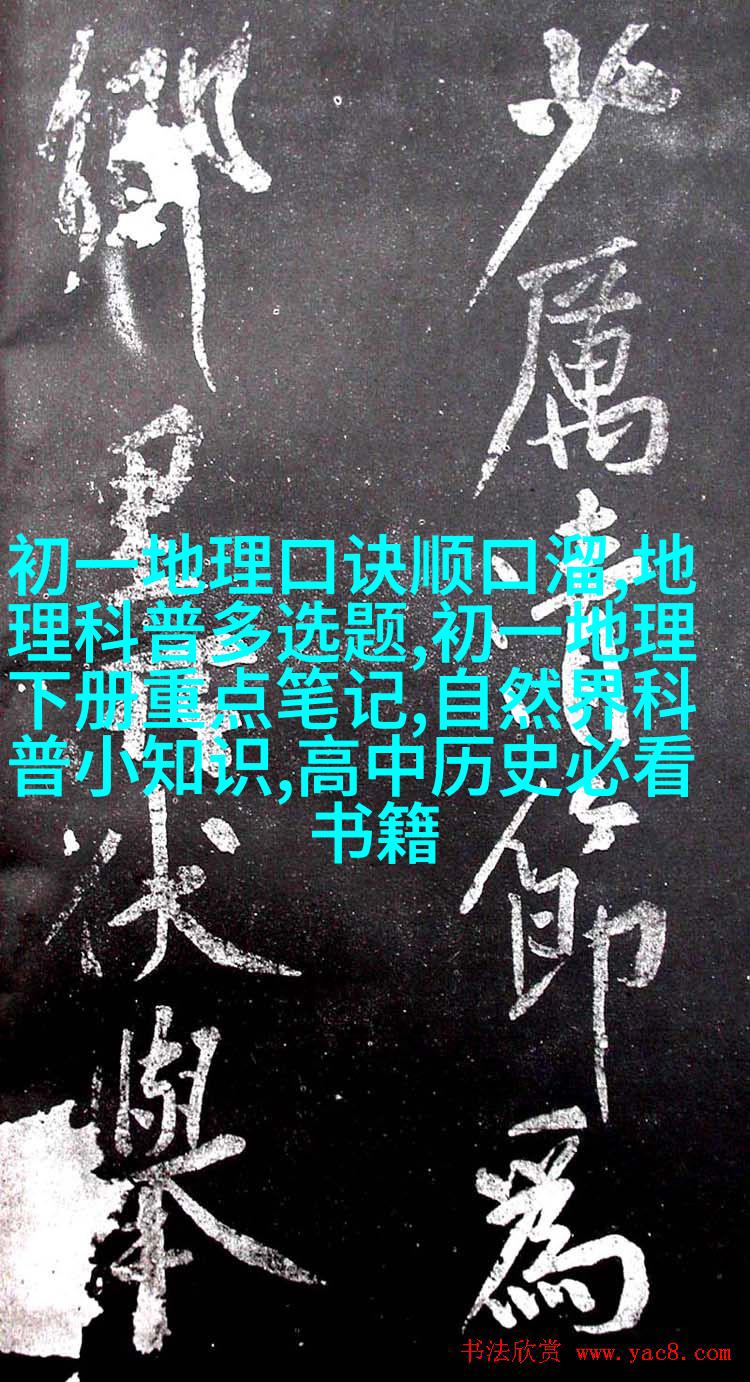 少厲清節為
鄉里伏舉
初一地理口诀顺口溜,地
理科普多选题,初一地理
下册重点笔记,自然界科
普小知识,高中历史必看
书籍
书法欣赏 www.yac8.com